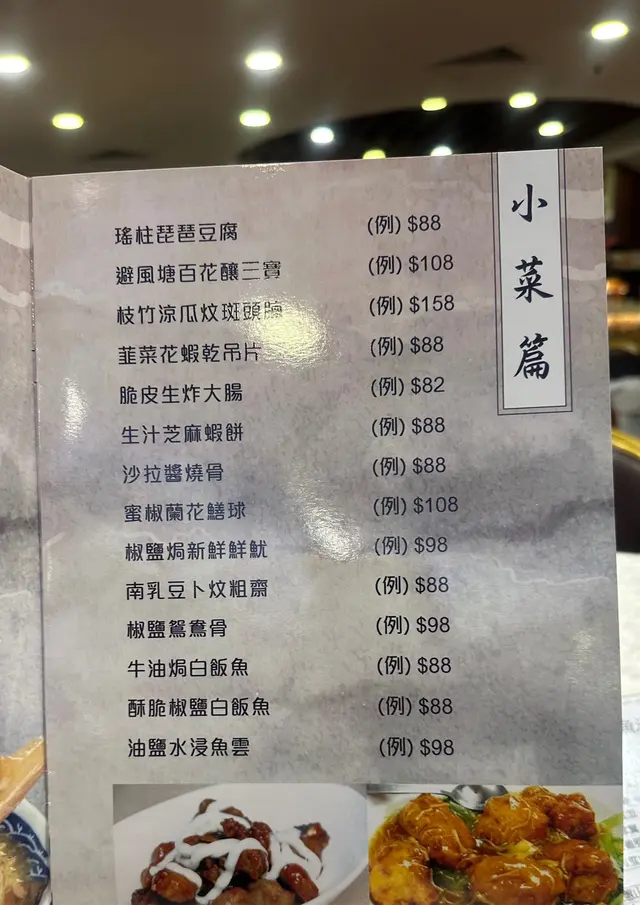 小菜篇
瑤柱琵琶豆腐 (例) $88
避風塘百花釀三寶 (例) $108
枝竹涼瓜炆斑頭腩 (例) $158
韮菜花蝦乾吊片 (例) $88
脆皮生炸大腸 (例) $82
生汁芝麻蝦餅 (例) $88
沙拉醬燒骨 (例) $88
蜜椒蘭花鱔球 (例) $108
椒鹽焗新鮮鮮魷 (例) $98
南乳豆卜炆粗齋 (例) $88
椒鹽鴛鴦骨 (例) $98
牛油焗白飯魚 (例) $88
酥脆椒鹽白飯魚 (例) $88
油鹽水浸魚雲 (例) $98